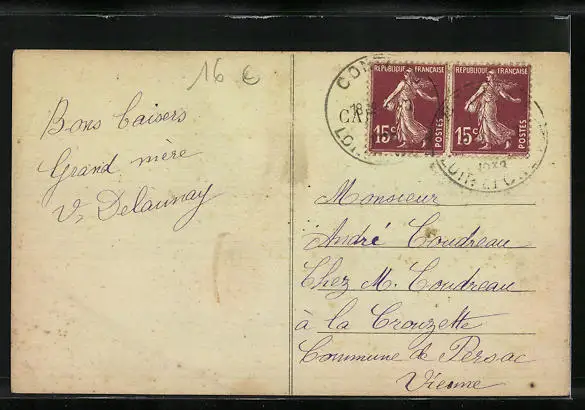 16 €
Bons baisers
Grand mère
V. Delaunay
REPUBLIQUE FRANÇAISE
15c
POSTES
REPUBLIQUE FRANÇAISE
15c
POSTES
Monsieur
André Coudreau
Chez M. Coudreau
à la Crouzette
Commune de Persac
Vienne